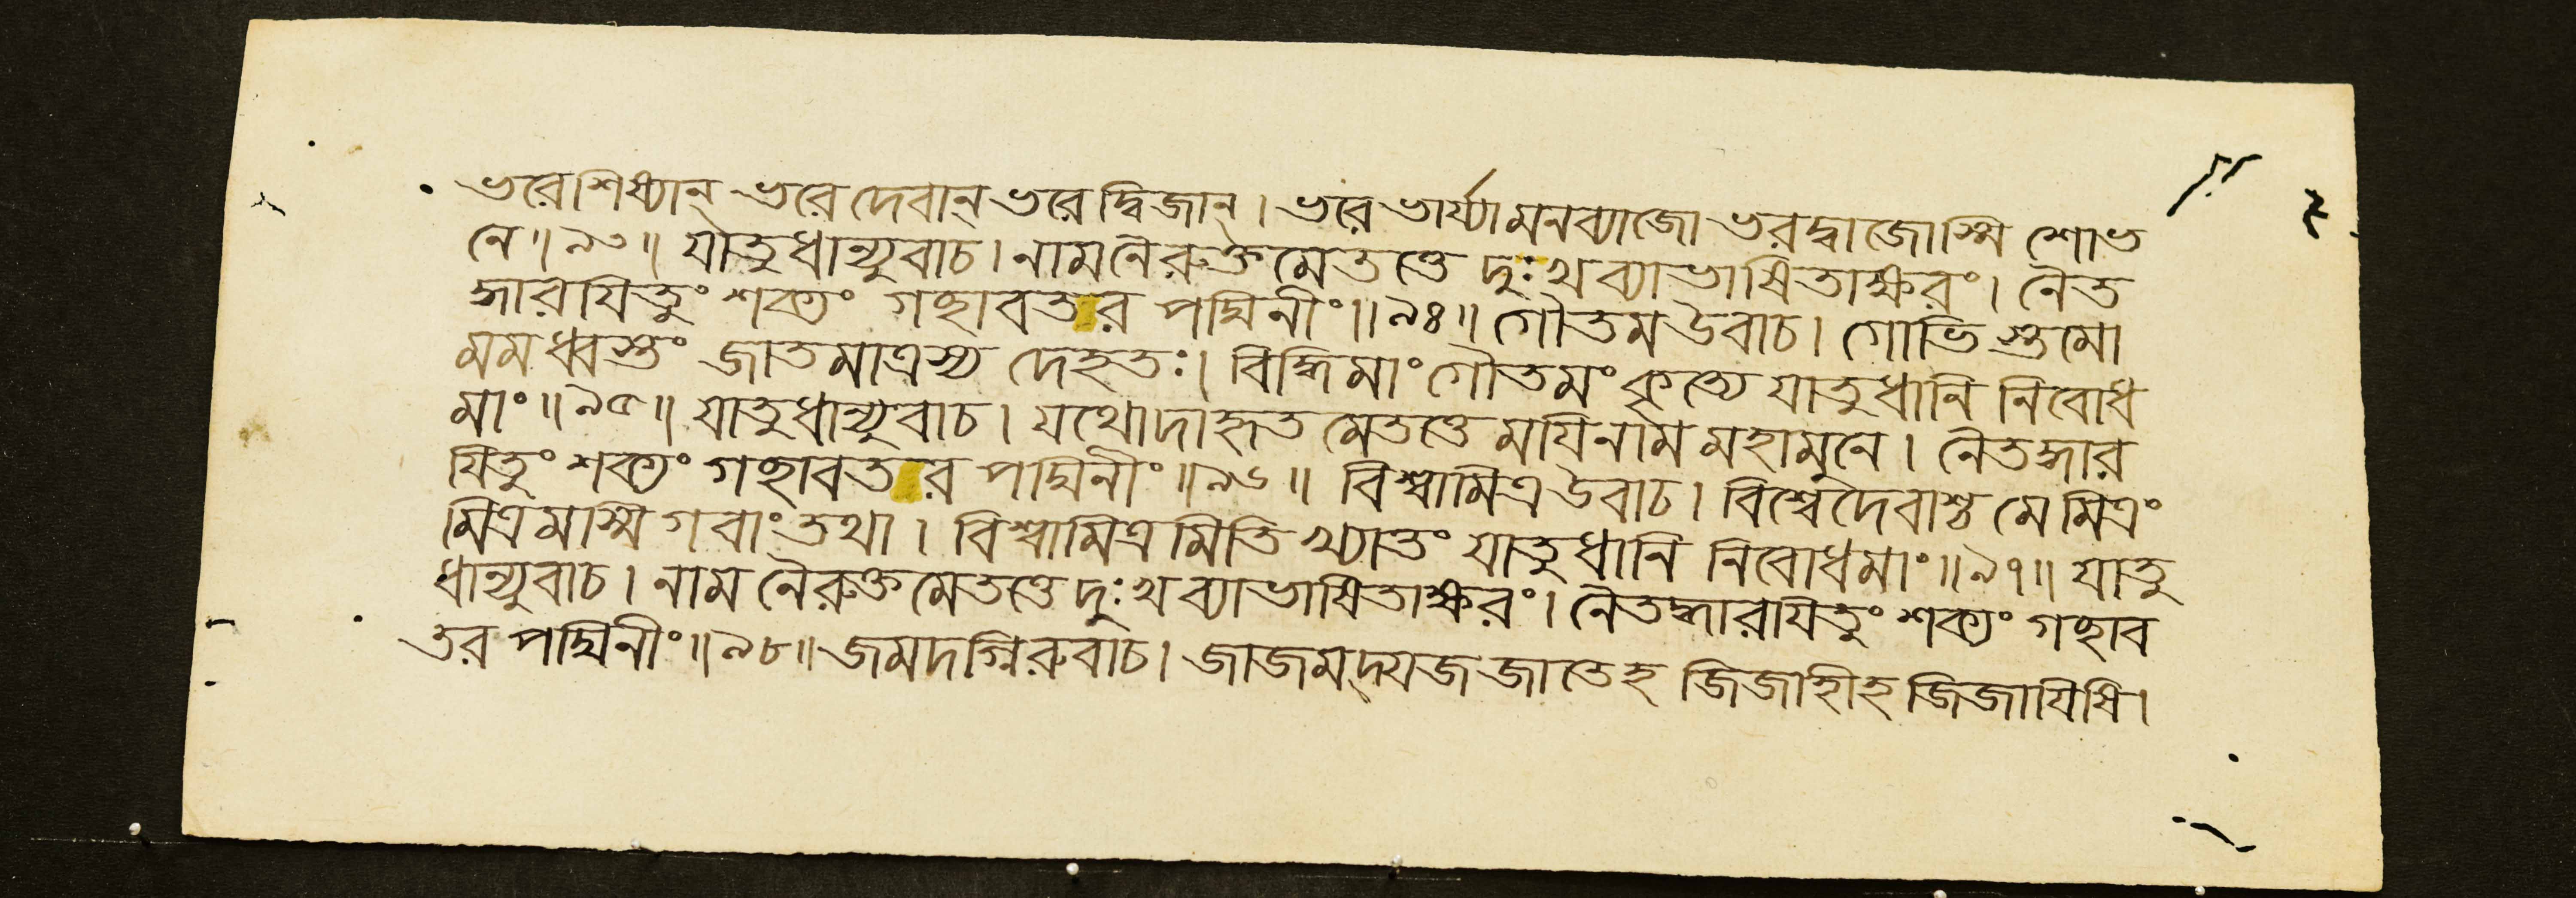 ভরেশিষ্যান্ ভরে দেবান্ ভরে দ্বিজান্। ভরে ভার্য্যামনব্যাজো ভরদ্বাজোস্মি শোভ
নে॥৯৩॥ যাতুধান্যুবাচ। নামনৈরুক্তমেতত্তে দুঃখব্যাভাষিতাক্ষরং। নৈত
দ্ধারযিতুং শক্যং গচ্ছাবতর পদ্মিনীং॥৯৪॥ গৌতম উবাচ। গোভিস্তমো
মম ধ্বস্তং জাতমাত্রস্য দেহতঃ। বিদ্ধি মাং গৌতমং কৃত্যে যাতুধানি নিবোধ
মাং॥৯৫॥ যাতুধান্যুবাচ। যথোদাহৃত মেতত্তে মযিনাম মহামুনে। নৈতদ্ধার
যিতুং শক্যং গচ্ছাবতর পদ্মিনীং॥৯৬॥ বিশ্বামিত্র উবাচ। বিশ্বেদেবাশ্চ মে মিত্রং
মিত্রমাস্মি গবাং তথা। বিশ্বামিত্রমিতি খ্যাতং যাতুধানি নিবোধমাং॥৯৭॥ যাতু
ধান্যুবাচ। নাম নৈরুক্তমেতত্তে দুঃখব্যাভাষিতাক্ষরং। নৈতদ্ধারাযিতুং শক্যং গচ্ছাব
তর পদ্মিনীং॥৯৮॥ জমদগ্নিরুবাচ। জাজমদ্যজজাতেহ জিজাহীহ জিজাযিষি।